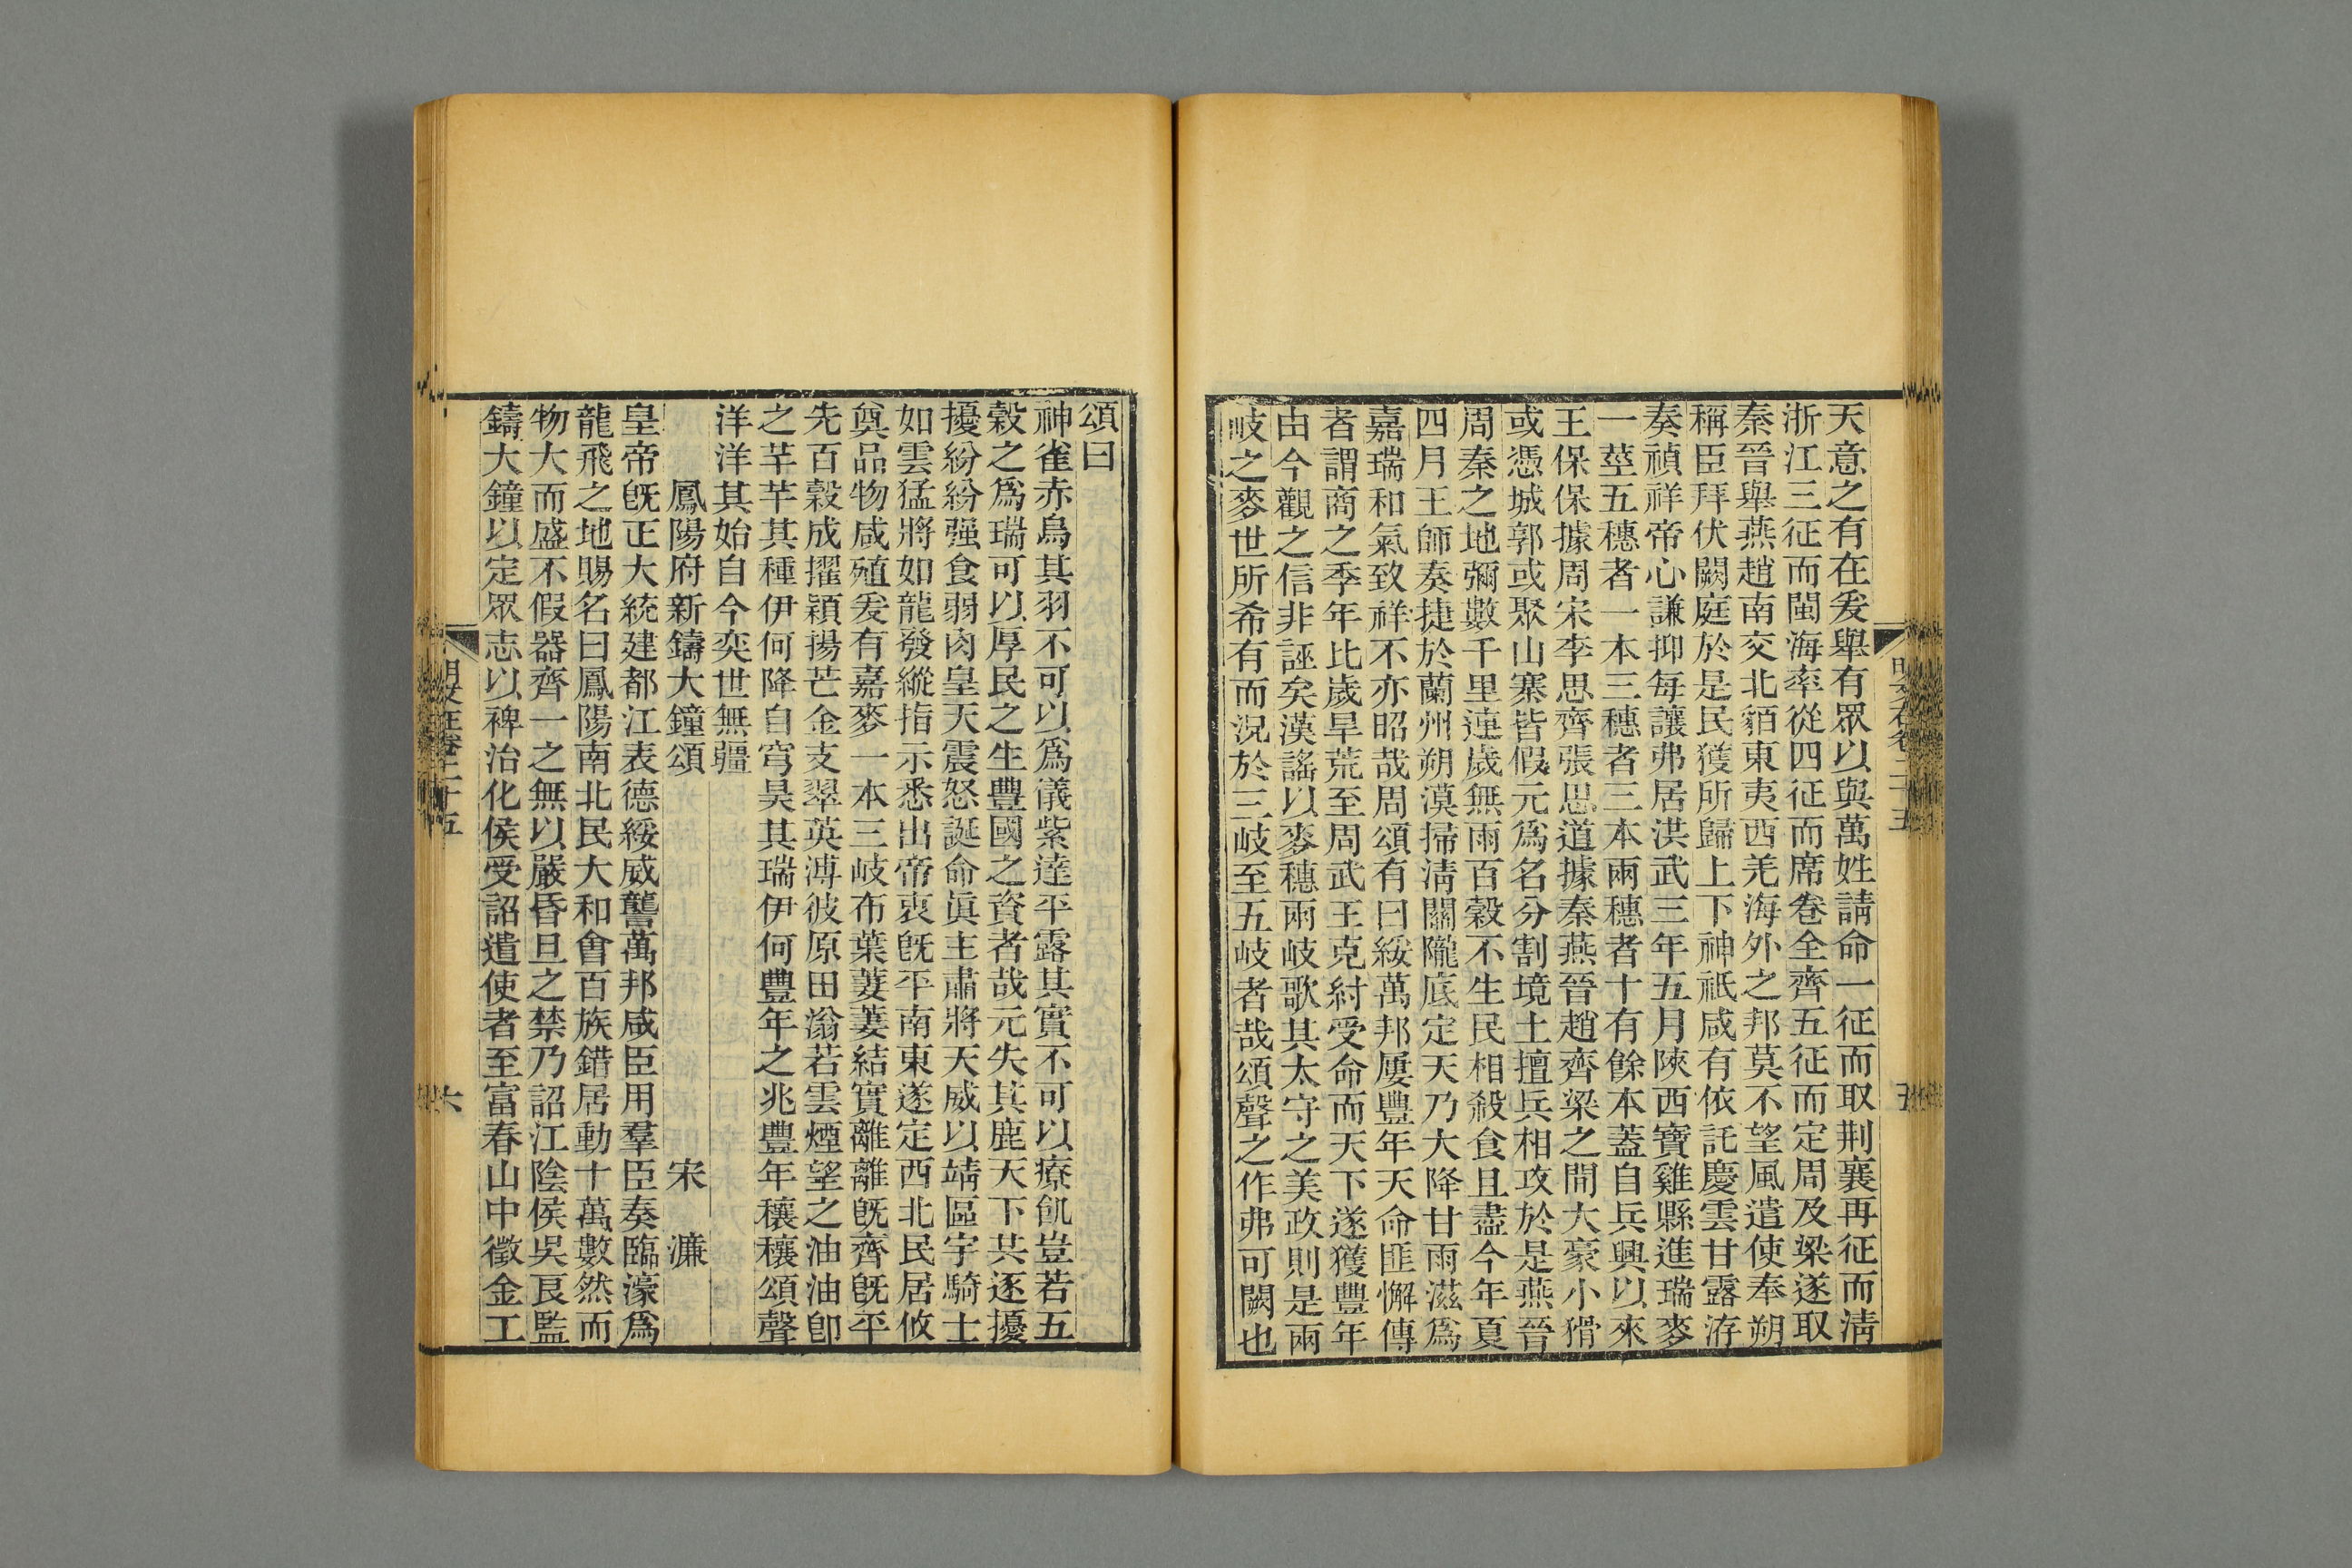 天意之有在爰舉有眾以與萬姓請命一征而取荆襄再征而淸
浙江三征而閩海率從四征而席卷全齊五征而定周及梁遂取
秦晉舉燕趙南交北貊東夷西羌海外之邦莫不望風遣使奉朔
稱臣拜伏闕庭於是民獲所歸上下神祇咸有依託慶雲甘露洊
奏禎祥帝心謙抑每讓弗居洪武三年五月陝西寶雞縣進瑞麥
一莖五穗者一本三穗者三本兩穗者十有餘本蓋自兵興以來
王保保據周宋李思齊張思道據秦燕晉趙齊梁之間大豪小猾
或憑城郭或聚山寨皆假元爲名分割境土擅兵相攻於是燕晉
周秦之地彌數千里連歲無雨百穀不生民相殺食且盡今年夏
四月王師奏捷於蘭州朔漠掃淸關隴底定天乃大降甘雨滋爲
嘉瑞和氣致祥不亦昭哉周頌有曰綏萬邦屢豐年天命匪懈傳
者謂商之季年比歲旱荒至周武王克紂受命而天下遂獲豐年
由今觀之信非誣矣漢謠以麥穗兩岐歌其太守之美政則是兩
岐之麥世所希有而況於三岐至五岐者哉頌聲之作弗可闕也
頌曰
神雀赤烏其羽不可以爲儀紫達平露其實不可以療飢豈若五
穀之爲瑞可以厚民之生豐國之資者哉元失其鹿天下共逐擾
擾紛紛强食弱肉皇天震怒誕命眞主肅將天威以靖區宇騎士
如雲猛將如龍發縱指示悉出帝衷旣平南東遂定西北民居攸
奠品物咸殖爰有嘉麥一本三岐布葉萋萋結實離離旣齊旣平
先百穀成擢穎揚芒金支翠英溥彼原田滃若雲煙望之油油卽
之芊芊其種伊何降自穹昊其瑞伊何豐年之兆豐年穰穰頌聲
洋洋其始自今奕世無疆
鳳陽府新鑄大鐘頌 宋濂
皇帝旣正大統建都江表德綏威讋萬邦咸臣用羣臣奏臨濠爲
龍飛之地賜名曰鳳陽南北民大和會百族錯居動十萬數然而
物大而盛不假器齊一之無以嚴昏旦之禁乃詔江陰侯吳良監
鑄大鐘以定眾志以裨治化侯受詔遣使者至富春山中徵金工
明文在卷二十五
六